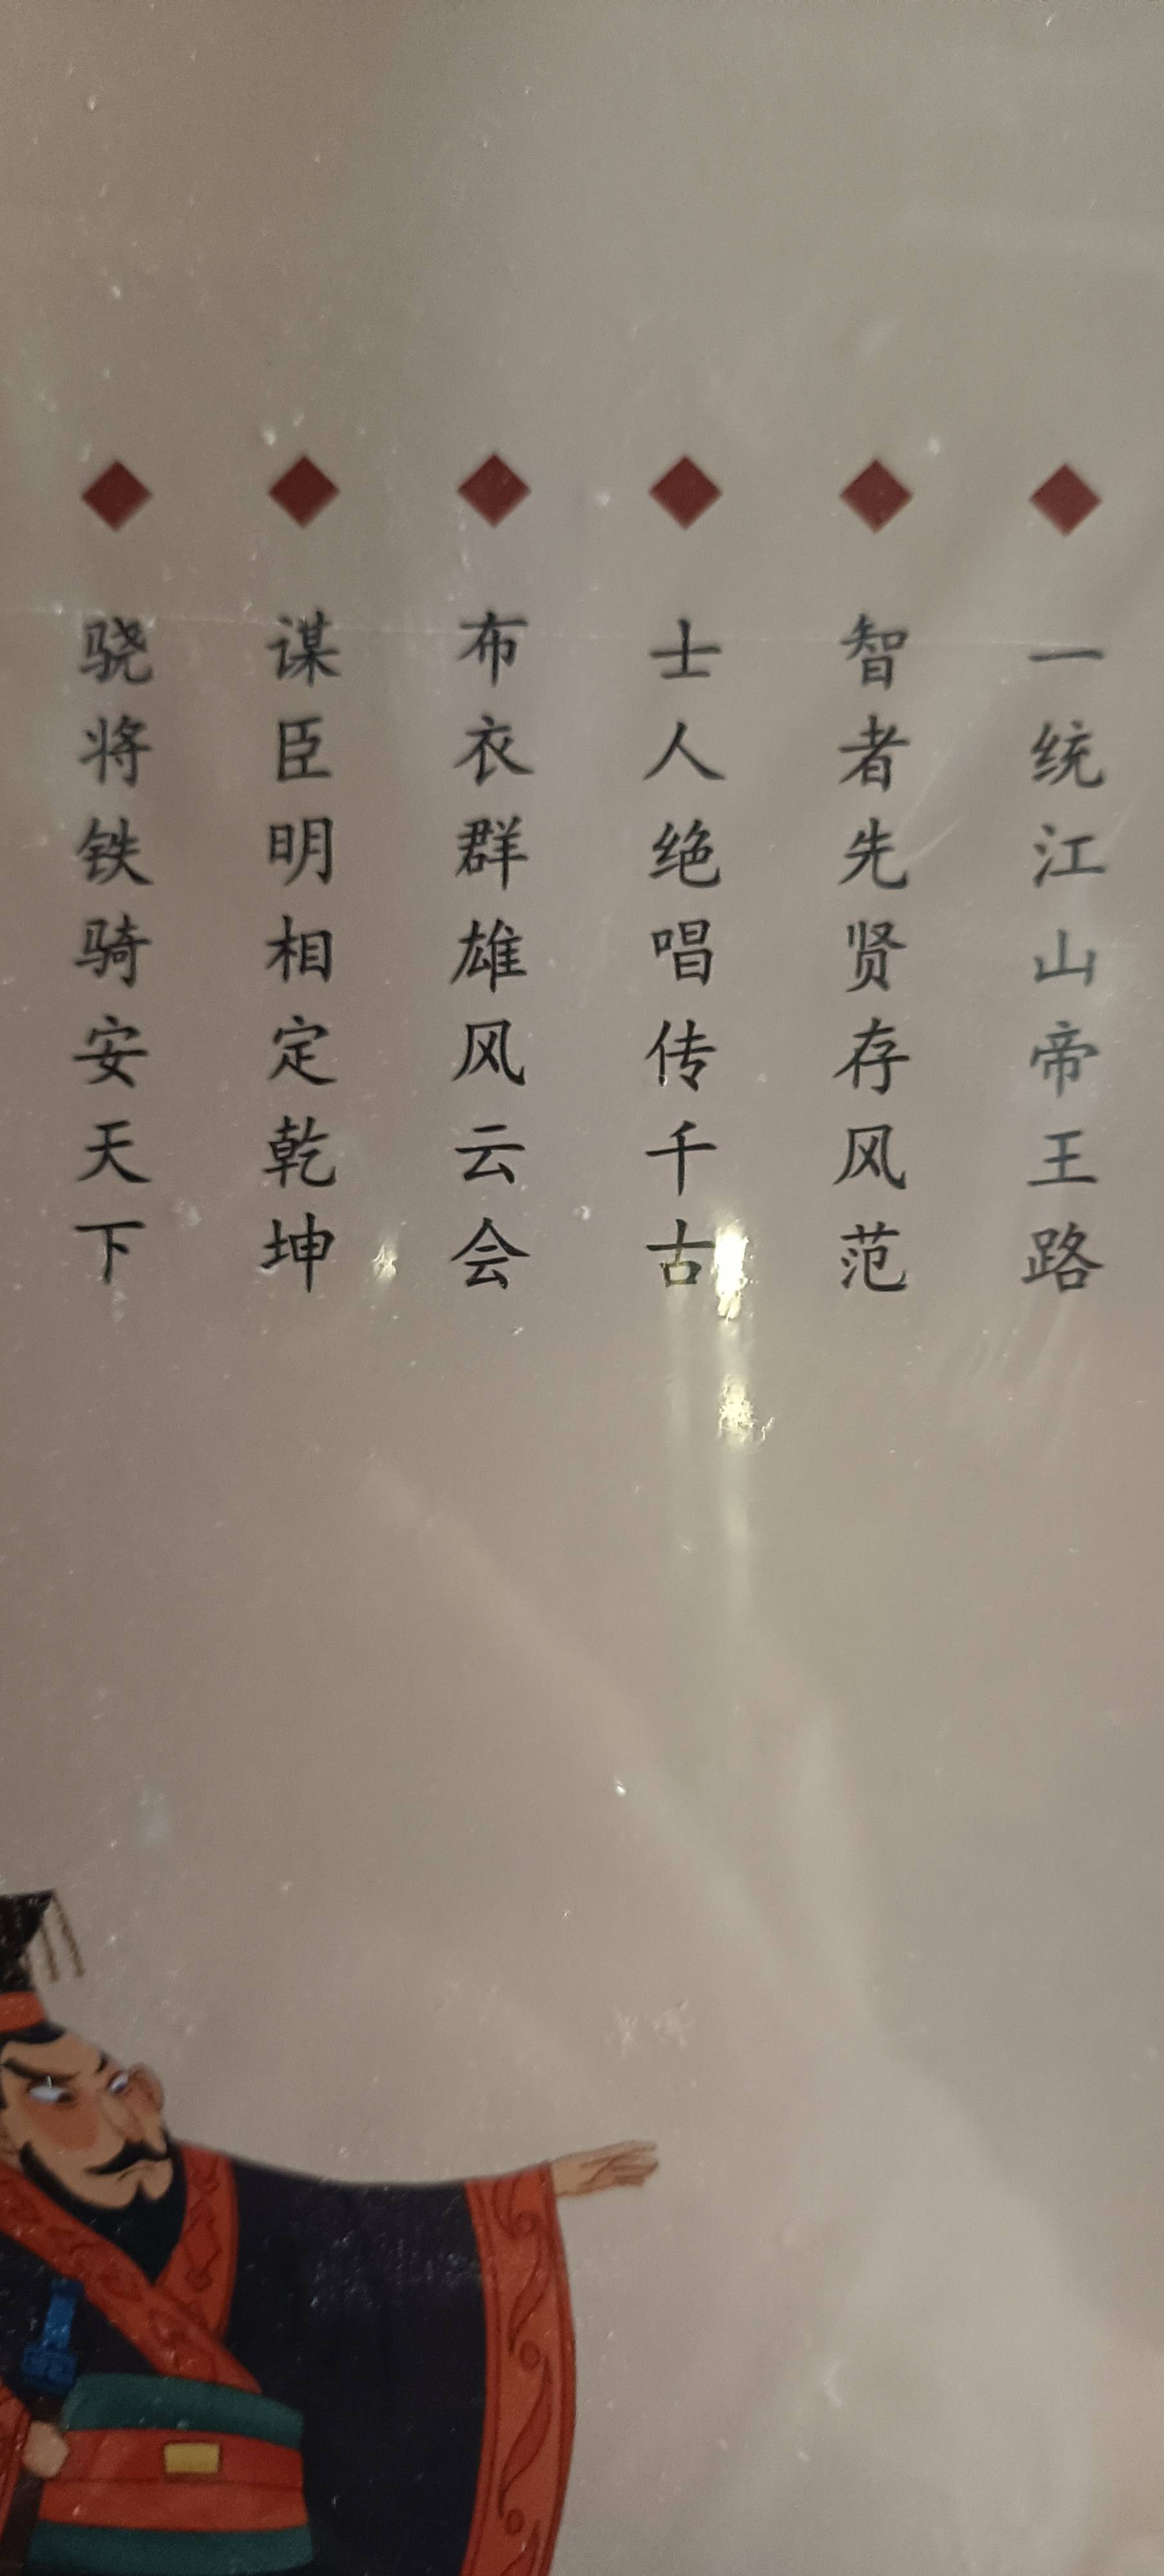 一统江山帝王路
智者先贤存风范
士人绝唱传千古
布衣群雄风云会
谋臣明相定乾坤
骁将铁骑安天下